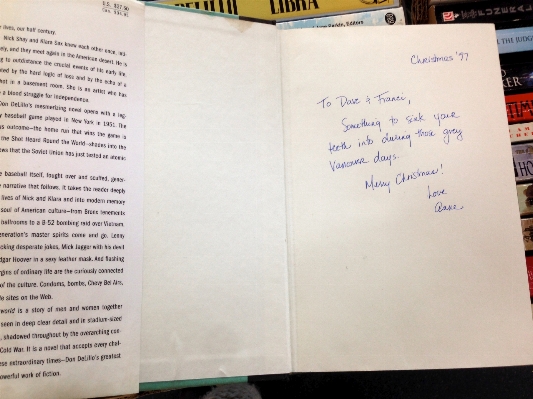 LIBRA
Editors
U.S. $27.50
r lives, our half century.
Nick Shay and Klara Sax knew each other once, inti-
ely, and they meet again in the American desert. He is
ng to outdistance the crucial events of his early life,
nted by the hard logic of loss and by the echo of a
hot in a basement room. She is an artist who has
a blood struggle for independence.
Don DeLillo's mesmerizing novel opens with a leg-
y baseball game played in New York in 1951. The
us outcome—the home run that wins the game is
the Shot Heard Round the World—shades into the
ows that the Soviet Union has just tested an atomic
e baseball itself, fought over and scuffed, gener-
narrative that follows. It takes the reader deeply
lives of Nick and Klara and into modern memory
soul of American culture—from Bronx tenements
ballrooms to a B-52 bombing raid over Vietnam.
eneration's master spirits come and go. Lenny
cking desperate jokes, Mick Jagger with his devil
dgar Hoover in a sexy leather mask. And flashing
rgins of ordinary life are the curiously connected
of the culture. Condoms, bombs, Chevy Bel Airs,
le sites on the Web.
world is a story of men and women together
seen in deep clear detail and in stadium-sized
, shadowed throughout by the overarching con-
Cold War. It is a novel that accepts every chal-
ese extraordinary times—Don DeLillo's greatest
owerful work of fiction.
Christmas '97
To Dave & Franci,
Something to sink your
teeth into during those grey
Vancouver days.
Merry Christmas!
Love
Anne
FUNERAL
THE JUDGE